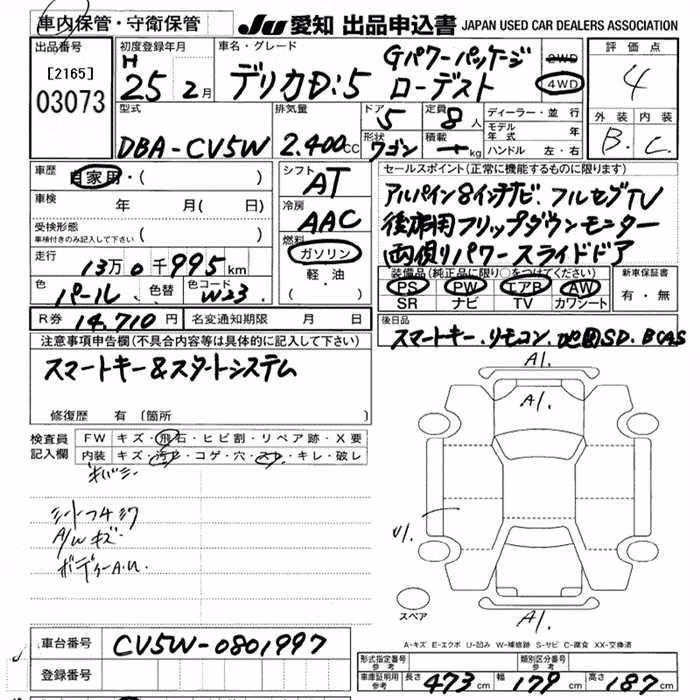 車内保管・守衛保管
JU 愛知 出品申込書 JAPAN USED CAR DEALERS ASSOCIATION
出品番号
[2165]
03073
初度登録年月
H
25 2月
車名・グレード
デリカD:5
Gパワーパッケージ
ローデスト
2WD
4WD
評価点
4
外装 内装
B. C.
型式
DBA-CV5W
排気量
2.400cc
ドア
5
定員
8人
形状
ワゴン
積載
kg
ディーラー・並行
モデル年式 年
ハンドル 左・右
車歴
自家用・( )
車検
年 月( 日)
受検形態
車検付きのみ記入して下さい ( )
走行
13万0千995km
色
パール
色替
色コードNo.
W23
シフト
AT
冷房
AAC
燃料
ガソリン
軽・油
( )
セールスポイント(正常に機能するものに限ります)
アルパイン8インチナビ.フルセグTV
後席用フリップダウンモニター
両側パワースライドドア
装備品(純正品に限り○をつけてください)
PS PW エアB AW
SR ナビ TV カワシート
新車保証書
有・無
R券 14,710円
名変通知期限 月 日
後日品
スマートキー.リモコン.地図SD.BCAS
注意事項申告欄(不具合内容等は具体的に記入して下さい)
スマートキー&スタートシステム
修復歴 有 [箇所 ]
検査員
記入欄
FW キズ・飛石・ヒビ割・リペア跡・X要
内装 キズ・汚レ・コゲ・穴・スレ・キレ・破レ
A/Wキズ
ボディーA.U
A1.
A1.
A1.
スペア
A-キズ E-エクボ U-凹み W-補修跡 S-サビ C-腐食 XX-交換済
車台番号
CV5W-0801997
登録番号
形式指定番号 参考
類別区分番号 参考
車庫証明用 参考
長さ 473cm 幅 179cm 高さ 187cm